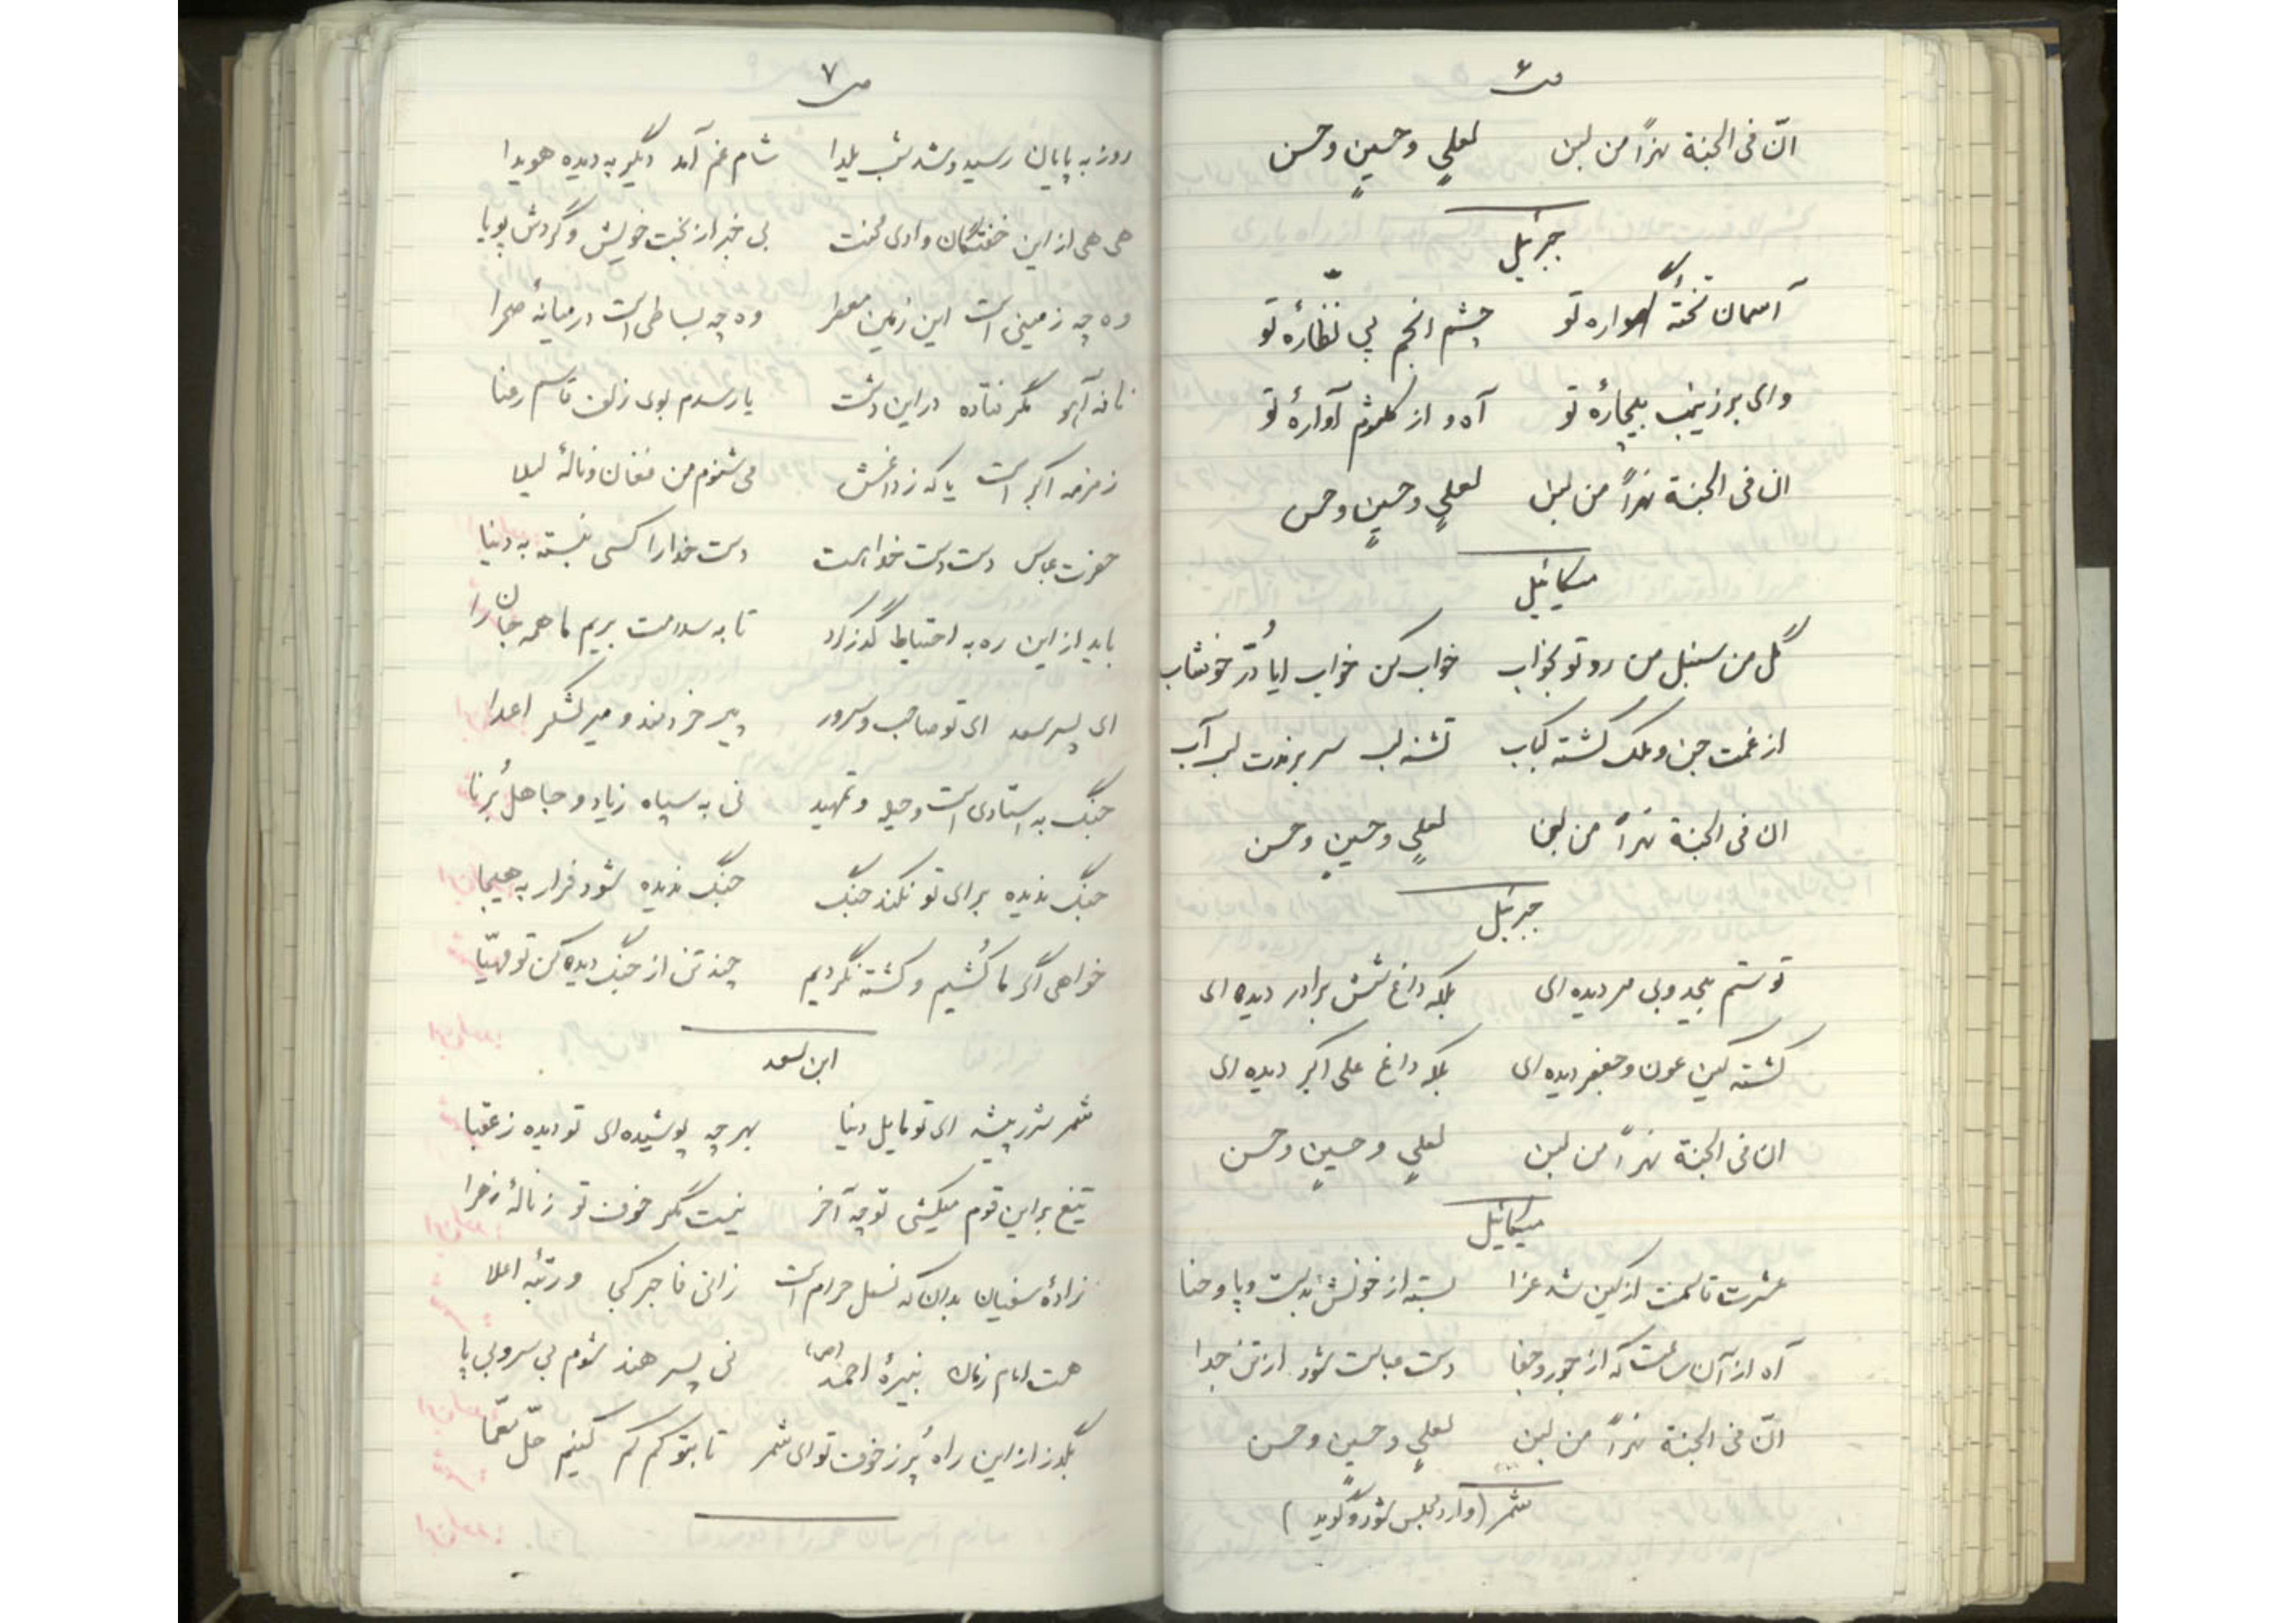 ص ۶
انّ فی الجنة نهراً من لبن لعلیٍ و حسینٍ و حسن
جبرئیل
آسمان تختهٔ گهواره تو چشم انجم پی نظارهٔ تو
وای بر زینب بیچارهٔ تو آه و از کلثوم آوارهٔ تو
ان فی الجنة نهراً من لبن لعلیٍ و حسینٍ و حسن
میکائیل
گل من سنبل من رو تو بخواب خواب کن خواب ایا دُرّ خوشاب
از غمت جن و ملک گشته کباب تشنه لب سر برندت لب آب
ان فی الجنة نهراً من لبن لعلیٍ و حسینٍ و حسن
جبرئیل
تو ستم بیحد و بی مر دیده ای بلکه داغ شش برادر دیده ای
کشته کین عون و جعفر دیده ای بلکه داغ علی اکبر دیده ای
ان فی الجنة نهراً من لبن لعلیٍ و حسینٍ و حسن
میکائیل
عشرت قاسمت از کین شد عزا بسته از خونش به دست و پا و حنا
آه از آن ساعت که از جور و جفا دست عباست شود از تن جدا
انّ فی الجنة نهراً من لبن لعلیٍ و حسینٍ و حسن
شمر (وارد مجلس شود و گوید)
ص ۷
روز به پایان رسید و شد شب یلدا شام غم آمد دیگر به دیده هویدا
هی هی از این خفتگان وادی محنت بی خبر از بخت خویش و گردش پویا
وه چه زمینی است این زمین معطر وه چه بساطی است در میانهٔ صحرا
نافه آهو مگر فتاده در این دشت یا رسدم بوی زلف قاسم رعنا
زمزمه اکبر است یا که ز داغش می شنوم من فغان و نالهٔ لیلا
حضرت عباس دست دست خدا است دست خدا را کسی نبسته به دنیا
باید از این ره به احتیاط گذر کرد تا به سلامت بریم ما همه جان را
ای پسر سعد ای تو صاحب و سرور پیر خردمند و میر لشکر اعدا
جنگ به استادی است و حیله و تمهید نی به سپاه زیاد و جاهل بُرنا
جنگ ندیده برای تو نکند جنگ جنگ ندیده شود فرار به هیجا
خواهی اگر ما کُشیم و کشته نگردیم چند تن از جنگ دیده کن تو مهیّا
ابن سعد
شمر شرر پیشه ای تو مایل دنیا بهر چه پوشیده ای تو دیده ز عقبا
تیغ بر این قوم میکشی تو چه آخر نیست مگر خوف تو ز نالهٔ زهرا
زادهٔ سفیان بدان که نسل حرام است زانی فاجر کی و رتبه اعلا
هست امام زمان نبیرهٔ احمد (ص) نی پسر هند شوم بی سر و بی پا
بگذر از این راه پُر ز خوف تو ای شمر تا بتو کم کم کنیم حلّ معمّا